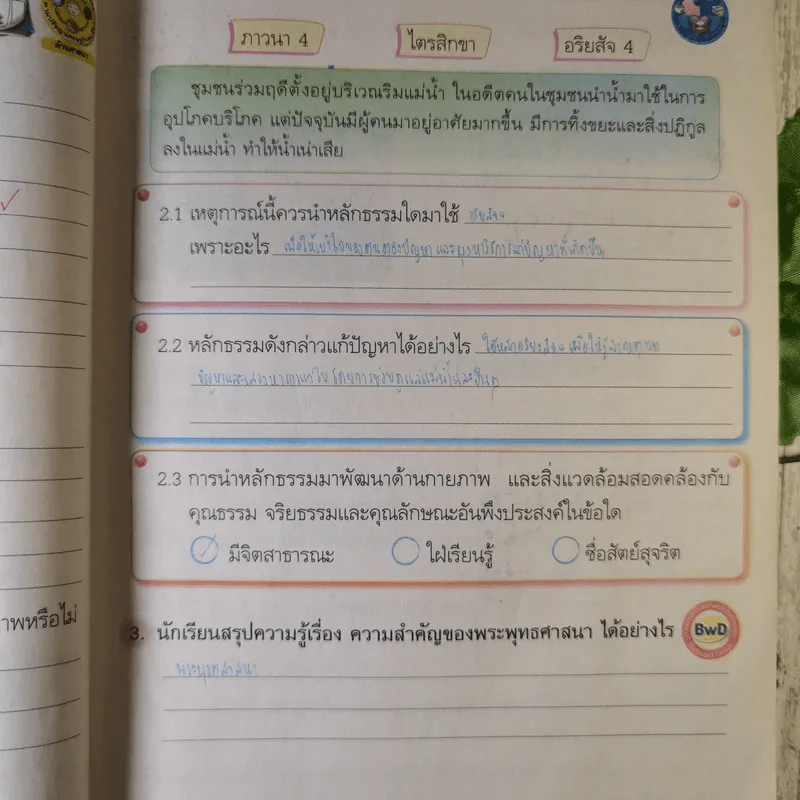 ด้านศาสนา
ภาวนา 4 ไตรสิกขา อริยสัจ 4
ชุมชนร่วมฤดีตั้งอยู่บริเวณริมแม่น้ำ ในอดีตคนในชุมชนนำน้ำมาใช้ในการ
อุปโภคบริโภค แต่ปัจจุบันมีผู้คนมาอยู่อาศัยมากขึ้น มีการทิ้งขยะและสิ่งปฏิกูล
ลงในแม่น้ำ ทำให้น้ำเน่าเสีย
2.1 เหตุการณ์นี้ควรนำหลักธรรมใดมาใช้ อริยสัจ4
เพราะอะไร เพื่อให้เข้าใจ ปัญหา และ แก้ปัญหาที่เกิดขึ้น
2.2 หลักธรรมดังกล่าวแก้ปัญหาได้อย่างไร ใช้หลักอริยสัจ 4 เพื่อให้รู้
ปัญหาและ โดยการช่วยดูแลแม่น้ำและอื่นๆ
2.3 การนำหลักธรรมมาพัฒนาด้านกายภาพ และสิ่งแวดล้อมสอดคล้องกับ
คุณธรรม จริยธรรมและคุณลักษณะอันพึงประสงค์ในข้อใด
มีจิตสาธารณะ ใฝ่เรียนรู้ ซื่อสัตย์สุจริต
าพหรือไม่
3. นักเรียนสรุปความรู้เรื่อง ความสำคัญของพระพุทธศาสนา ได้อย่างไร BwD
พระพุทธศาสนา